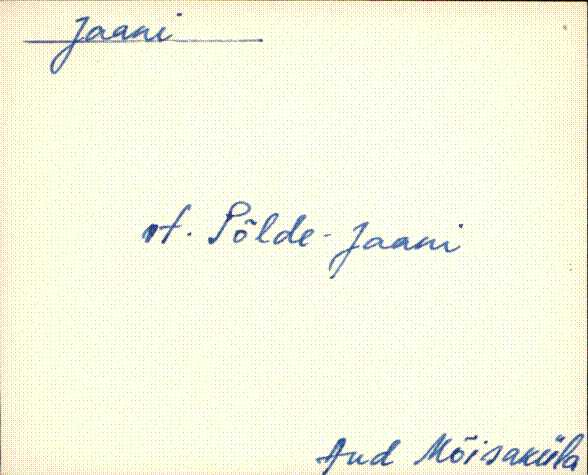 Jaani
vt. Põlde-Jaani
Aud Mõisaküla